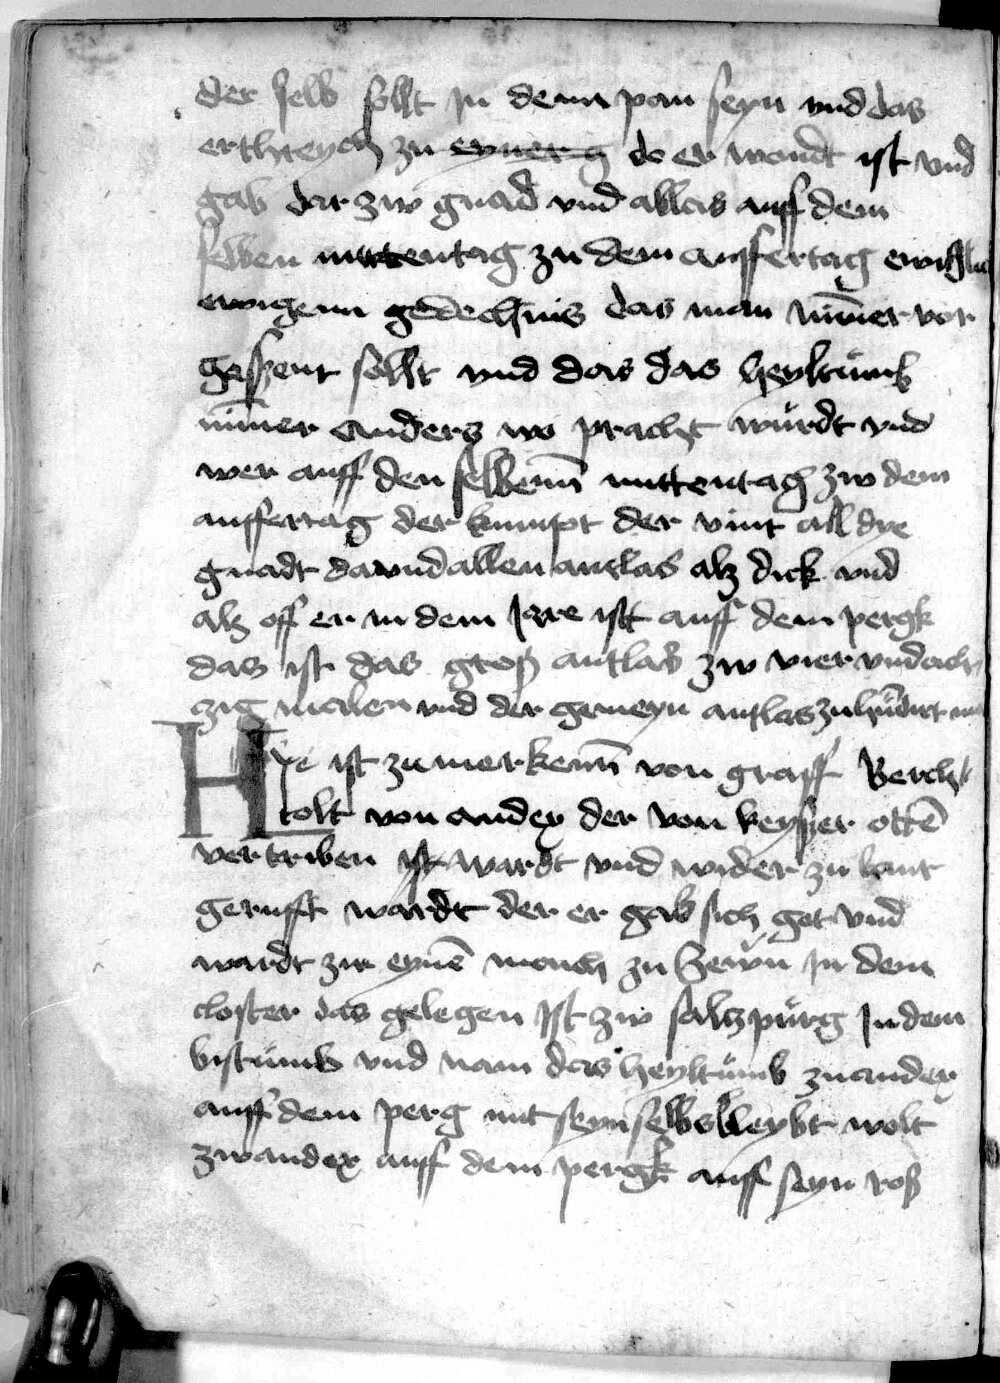 der selb sollt in denn pan seyn vnd das
erthreych zu eyner g do er wondt ist vnd
gab dar zw gnad vnd ablas auff dem
selben mittentag zu dem auffertag
ewigenn gedechnis das man nimer vor
gessenn sollt vnd das das heyltumb
nimer anders wo pracht wurdt vnd
wer auff den selbenn mittentag zw dem
auffertag der kumpt der vint all dye
gnadt da vnd allen antlas alz dick vnd
alz off er in dem jare ist auff dem pergk
das ist das groß antlas zw vier vnd ach
zig malen vnd der gemeyn antlas
Hye ist zu merkenn von graff Berch
tolt von andex der von keysser otte
vertriben ist wardt vnd wider zu lant
gerufft wardt der er gab sich got vnd
wardt zw eyne monch zu Sewn in dem
closter das gelegen ist zw saltzpurg in dem
bistumb vnd nam das heyltumb zu andex
auff dem perg mit seyn selbs leybt wolt
zw andex auff dem pergk auff seyn roß